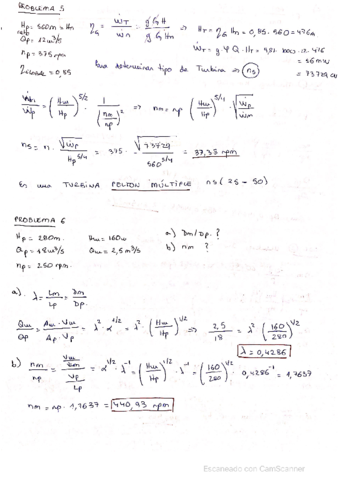 PROBLEMA 5
Hp = 560m = Hn
Qp = 12 m³/s
n = 375 rpm
ηG = Ẇr / Ẇn = g·Q·H / g·Q·Hn ⇒ Hr = ηG Hn = 0,85 · 560 = 476m
Ẇr = g · φ · Q · Hr = 9,81 · 1000 · 12 · 476
= 56 MW
= 73729 CV
Para determinar tipo de Turbina → ns
Ẇm/Ẇp = (Hm/Hp)^5/2 · 1/(nm/np)² ⇒ nm = np (Hm/Hp)^5/4 · √(Ẇp/Ẇm)
ns = n · √Ẇp / Hp^5/4 = 375 · √73729 / 560^5/4 = 37,35 rpm
Es una TURBINA PELTON MÚLTIPLE ns (25 - 50)
PROBLEMA 6
Hp = 280m. Hm = 160m a) Dm/Dp. ?
Qp = 18 m³/s Qm = 2,5 m³/s b) nm ?
np = 250 rpm.
a). λ = Lm/Lp = Dm/Dp.
Qm/Qp = Am · Vm / Ap · Vp = λ² · α^1/2 = λ² · (Hm/Hp)^1/2 ⇒ 2,5/18 = λ² (160/280)^1/2
λ = 0,4286
b) nm/np = (Vm/Lm)/(Vp/Lp) = α^1/2 · λ^-1 = (Hm/Hp)^1/2 · λ^-1 = (160/280)^1/2 · 0,4286^-1 = 1,7637
nm = np · 1,7637 = 440,93 rpm
Escaneado con CamScanner